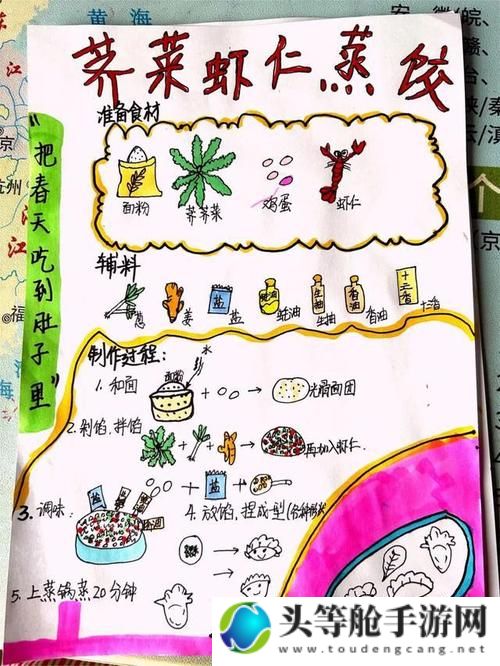 荠菜虾仁蒸饺
"把春天吃到肚子里"
准备食材
面粉
荠荠菜
鸡蛋
虾仁
辅料
葱
姜
盐
蚝油
生抽
香油
十三香
制作过程:
1. 和面
面粉
水
光滑面团
2. 剁馅,拌馅
再加入虾仁
3. 调味:
盐
盐
4. 放馅,捏成型
5. 上蒸锅蒸20分钟
黄海
江
头等舱手游网
www.toudengcang.net